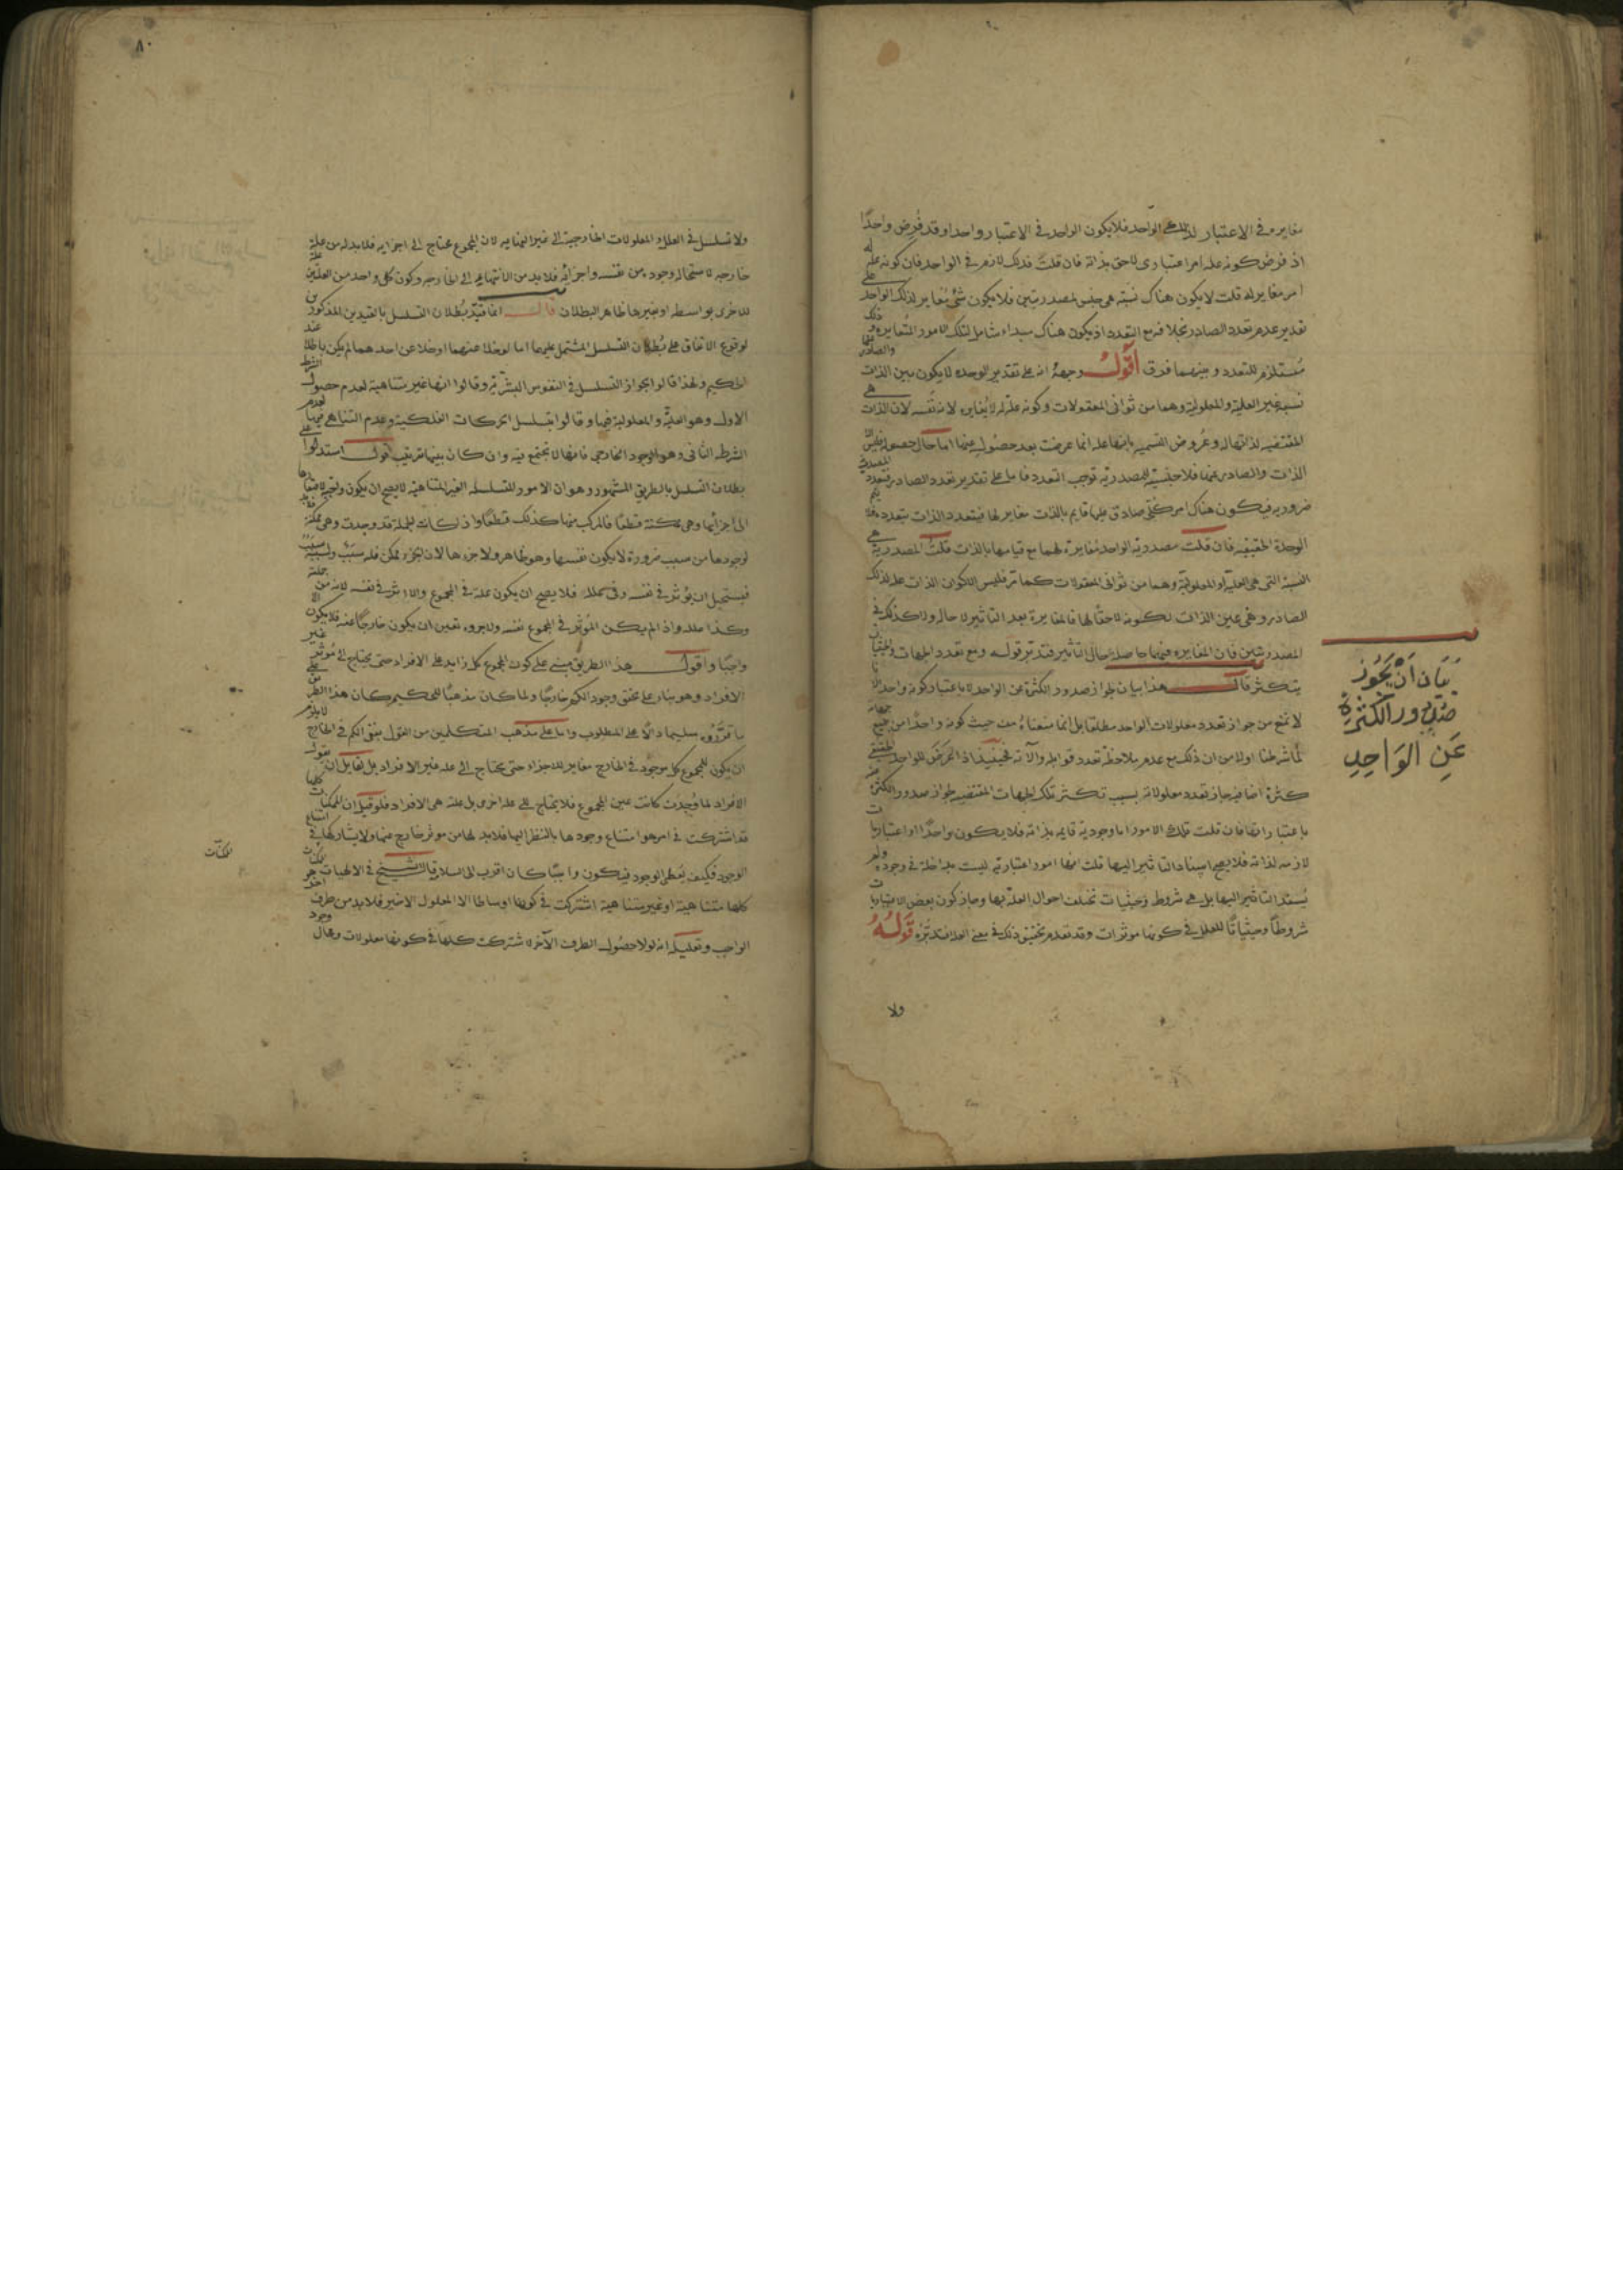 مغايره في الاعتبار لذلك الواحد فلا يكون الواحد في الاعتبار واحدا وقد فرض واحدًا
اذ فرض كونه علة امرا اعتباري لاحق بذاته فان قلت فذلك لازم في الواحد فان كونه علة له
امر مغاير له قلت لا يكون هناك نسبة هي جنس لمصدريتين فلا يكون شئ مغاير لذلك الواحد على
تقدير عدم تعدد الصادر بخلا فه مع التعدد اذ يكون هناك مبداء شامل لتلك الامور المتغايرة وذلك
مستلزم للتعدد وبينهما فرق اقول وجهه انه على تقدير الوحدة لا يكون بين الذات والصادر
نسبة غير العلية والمعلولية وهما من ثواني المعقولات وكونه علة له لا يغايره لانه نفسه لان الذات هي
المقتضية لذاتها له وعروض القسمية بانها علة انما عرضت بعد حصوله عنها اما حال حصوله فليس الا
الذات والصادر عنها فلا جنسية للمصدرية توجب التعدد فاما على تقدير تعدد الصادر فتعدد المصدرية
ضرورية فيكون هناك امر كلي صادق عليها قايم بالذات مغاير لها فيتعدد الذات بتعدده فلا يتم
الوحدة الحقيقية فان قلت مصدرية الواحد مغايرة لهما مع قيامها بالذات قلت المصدرية هي
النسبة التي هي العلية والمعلولية وهما من ثواني المعقولات كما مر فليس الا كون الذات علة لذلك
الصادر وهي عين الذات لكونه لاحقًا لها فالمغايرة بعد التاثير لا حاله ولا كذلك في
المصدريتين فان المغايرة فيهما حاصلة حال التاثير فتدبر قوله ومع تعدد الجهات والحيثيات
يتكثر قال هذا بيان لجواز صدور الكثرة عن الواحد لا باعتبار كونه واحدا فانا
لا نمنع من جواز تعدد معلولات الواحد مطلقا بل انما منعناه من حيث كونه واحدًا من جميع جهاته
لما شرطنا اولا من ان ذلك مع عدم ملاحظة تعدد قوابله والآته فحينئذ اذا عرض للواحد الحقيقي
كثرة اضافية جاز تعدد معلولاته بسبب تكثر تلك الجهات المقتضية لجواز صدور الكثرة عنه
باعتباراتها فان قلت تلك الامور اما وجودية قايمة بذاته فلا يكون واحدًا او اعتباريات
لازمة لذاته فلا يصح اسناد التاثير اليها قلت انها امور اعتبارية ليست بداخلة في وجوده ولم
يسند التاثير اليها بل هي شروط وحيثيات تختلف احوال العلة بها وجاز كون بعض الاعتباريات
شروطًا وحيثياتًا للعلل في كونها موثرات وقد تقدم تحقيق ذلك في معنى العدد فتدبره قوله
ولا
بيان ان يجوز
صدور الكثرة
عن الواحد
٨٠
ولا تسلسل في العلل والمعلولات الخارجية الى غير النهايه لان المجموع محتاج الى اجزايه فلا بد له من علة
خارجه لاستحالة وجوده من نفسه واجزائه فلا بد من الانتهاء الى الخارجه وكون كل واحد من العلتين علة
للاخرى بواسطه او غيرها ظاهر البطلان قال انما قيد بطلان التسلسل بالقيدين المذكورين
لوقوع الاتفاق على بطلان التسلسل المشتمل عليهما اما لو خلا عنهما او خلا عن احدهما لم يكن باطلا عند
الحكيم ولهذا قالوا بجواز التسلسل في النفوس البشرية وقالوا انها غير متناهية لعدم حصول الشرط
الاول وهو العلية والمعلولية فيها وقالوا بتسلسل الحركات الفلكية وعدم التناهي فيها لعدم
الشرط الثاني وهو الوجود الخارجي فانها لا تجتمع فيه وان كان بينها ترتيب اقول استدلوا على
بطلان التسلسل بالطريق المشهور وهو ان الامور المتسلسلة الغير المتناهية لا يصح ان يكون واجبة لافتقارها
الى اجزائها وهي ممكنة قطعًا فالمركب منها كذلك قطعًا واذا كانت الجملة قد وجدت وهي ممكنة فلا بد
لوجودها من سبب ضرورة لا يكون نفسها وهو ظاهر ولا جزءها لان الجزء ممكن فله سبب ولسببه سبب
فيستحيل ان يؤثر في نفسه وفي علله فلا يصح ان يكون علة في المجموع والا اثر في نفسه لانه من جملته
وكذا علله واذا لم يكن المؤثر في المجموع نفسه ولا جزوه تعين ان يكون خارجًا عنه فلا يكون الا
واجبًا واقول هذا الطريق مبني على كون المجموع كل زايد على الافراد حتى يحتاج الى مؤثر غير
الافراد وهو بناء على تحقق وجود الكم خارجًا ولما كان مذهبًا للحكيم كان هذا الطريق على
ما قرروه سليما دالًا على المطلوب واما على مذهب المتكلمين من القول بنفي الكم في الخارج لا يلزم
ان يكون للمجموع كل موجود في الخارج مغاير للاجزاء حتى يحتاج الى علة غير الافراد بل لقايل ان يقول
الافراد لما وجدت كانت عين المجموع فلا يحتاج الى علة اخرى بل علته هي الافراد فلو قيل ان الممكنات كلها
قد اشتركت في امر هو امتناع وجودها بالنظر اليها فلا بد لها من موثر خارج عنها ولا يشاركها في امتناع
الوجود فكيف يعطي الوجود فيكون واجبًا كان اقرب الى السلامة قال الشيخ في الالهيات الممكنات
كلها متناهية او غير متناهية اشتركت في كونها اوساطا الا المعلول الاخير فلا بد من طرف اخر هو
الواجب وتعليله انه لولا حصول الطرف الآخر لاشتركت كلها في كونها معلولات ومحال وجود
الممكنات